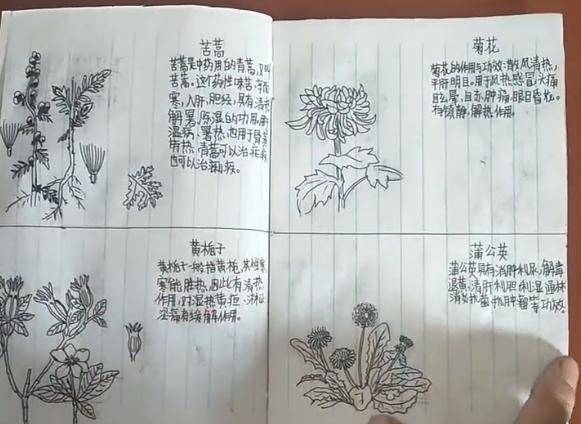 苦蒿
苦蒿是中药用的青蒿,又叫
苦蒿。这个药性味苦、辛而
寒,入肝,胆经,具有清热
解暑,除湿的功
湿病、暑热,也用于骨蒸
青蒿可以治疟疾
也可以治
菊花
菊花的作用与功效:散风清热,
平肝明目。用于风热感冒,头痛
眩晕,目赤肿痛,眼目昏花。
有镇静,解热作用。
黄栀子
黄栀子一般指黄栀,其性寒,
寒能胜热,因此有清热
作用,对湿热黄疸、淋证
涩痛有缓解作用。
蒲公英
蒲公英具有消肿利尿,解毒
退黄,清肝利胆,利湿通淋
消炎抗菌,抗肿瘤等功效。